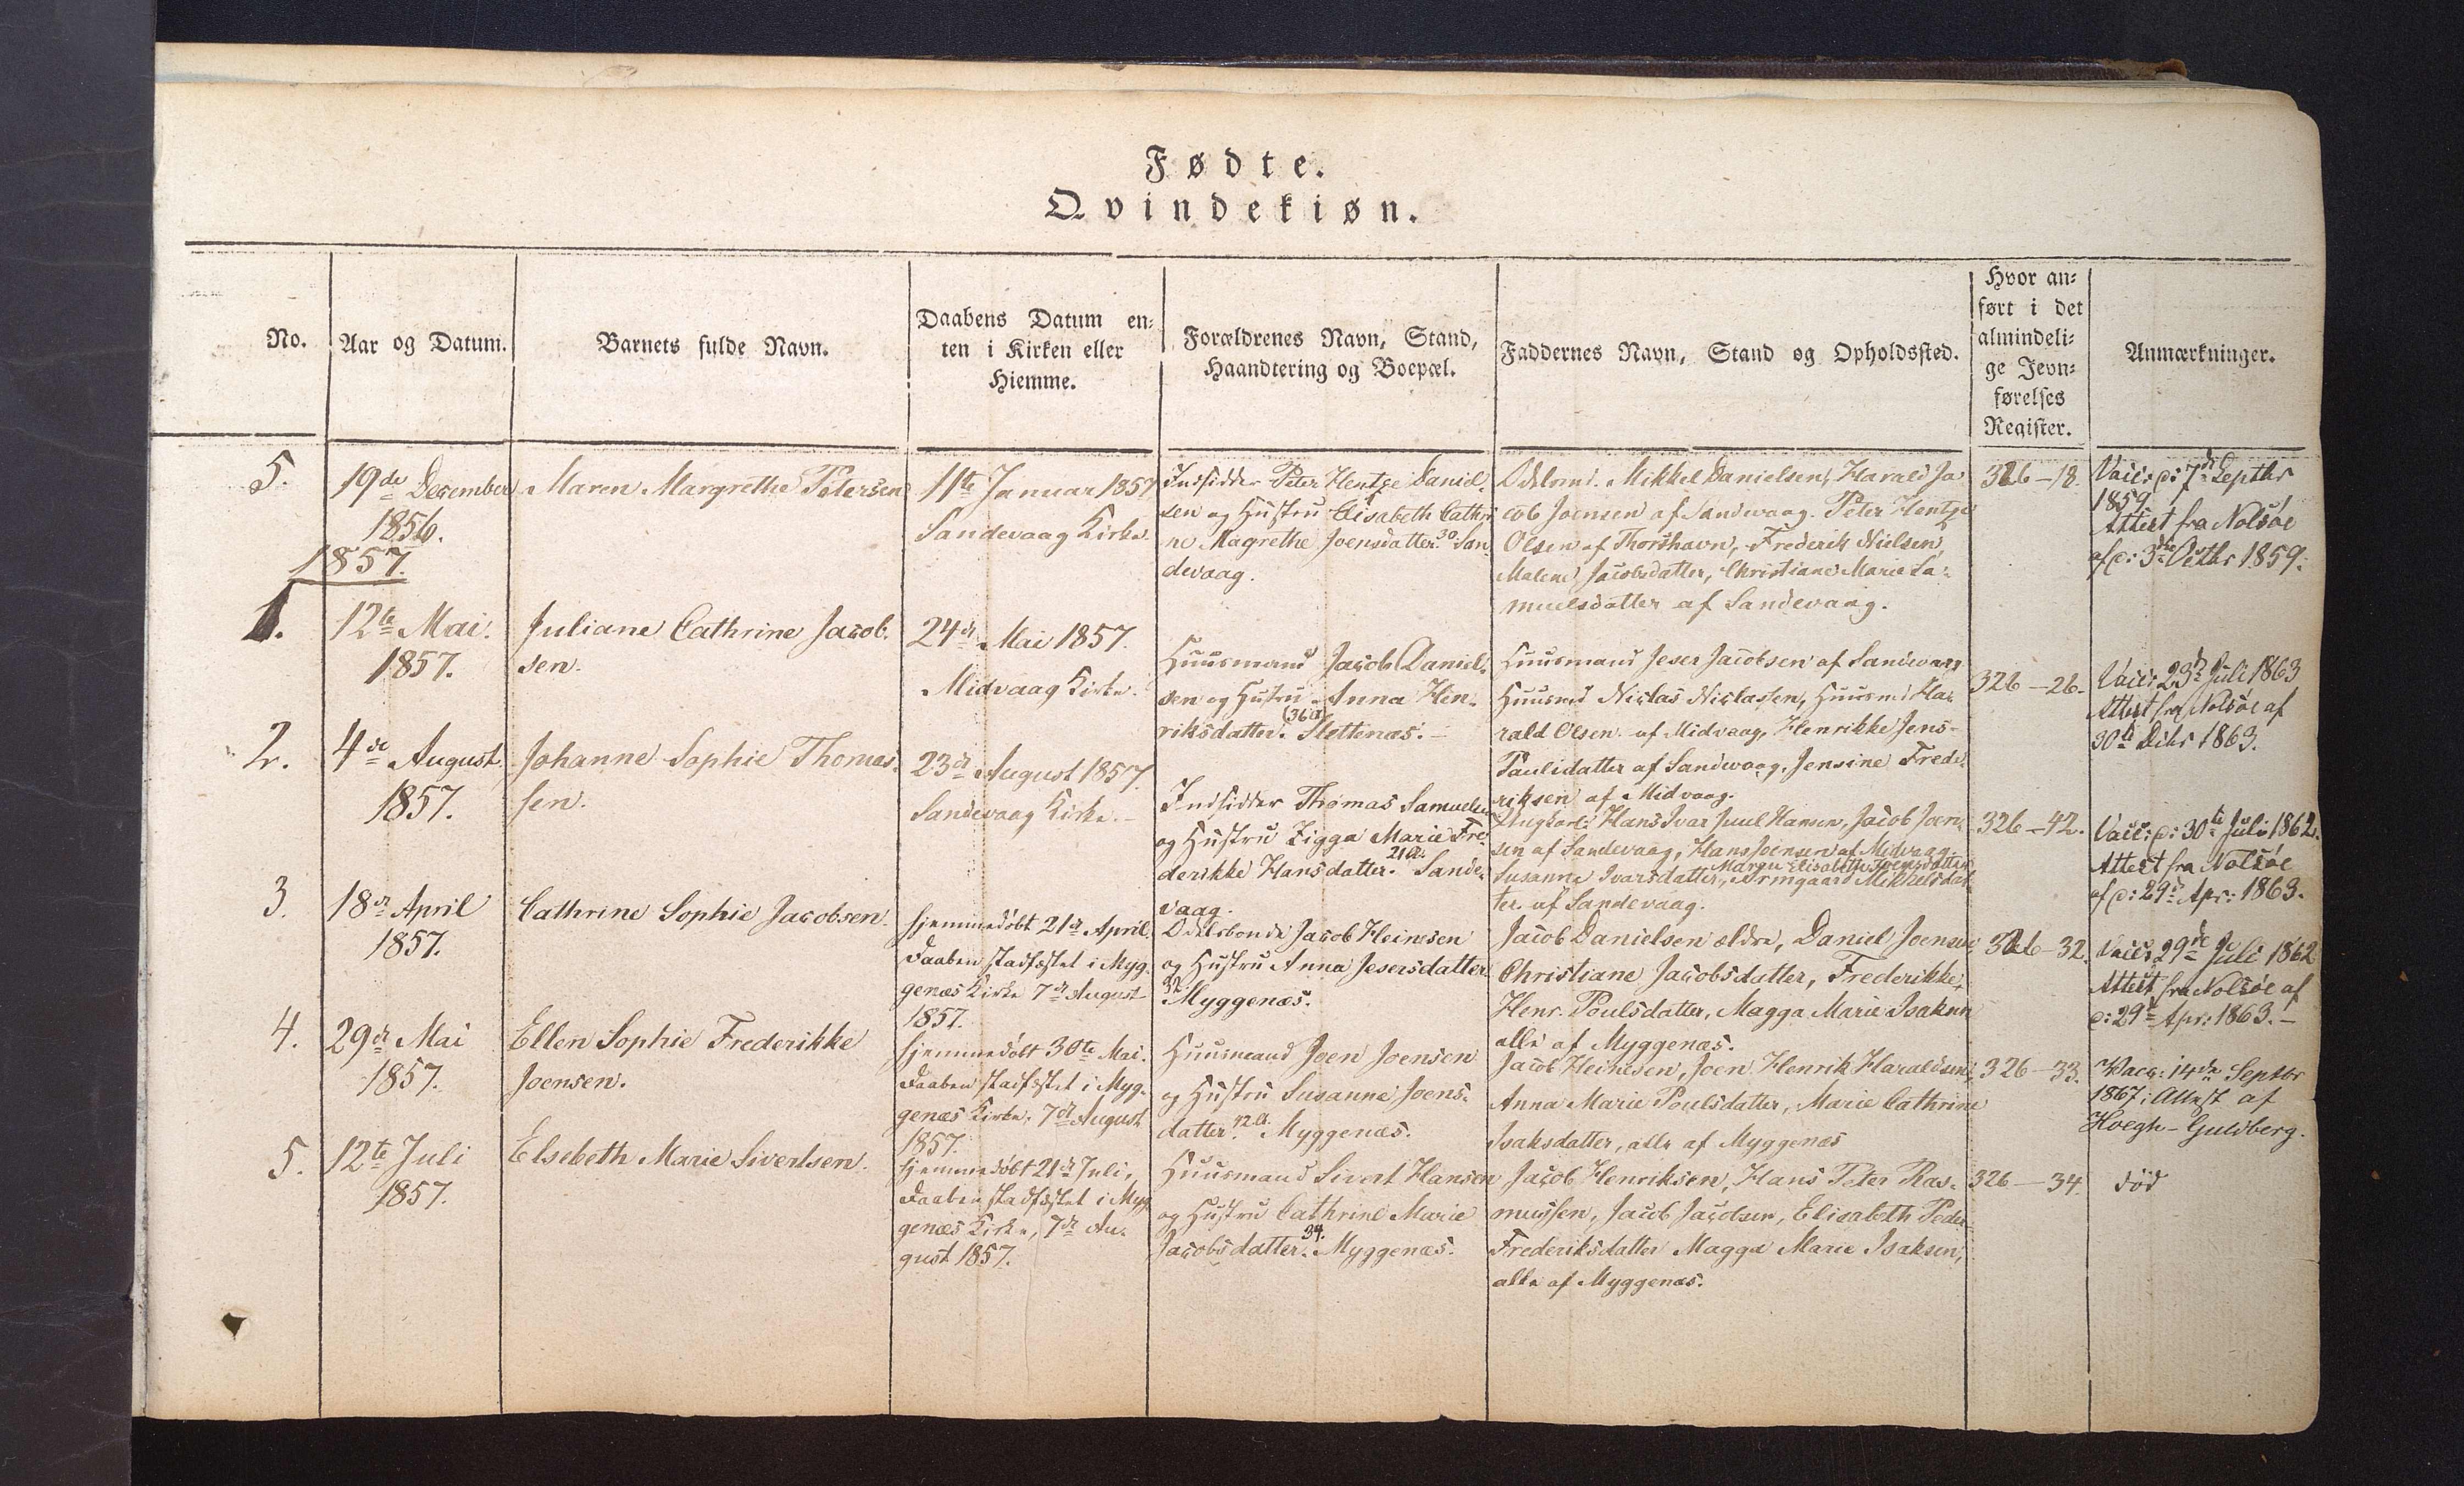 Fødte.
Qvindekiøn.
No.
Aar og Datum.
Barnets fulde Navn.
Daabens Datum en-
ten i Kirken eller
Hiemme.
Forældrenes Navn, Stand,
Haandtering og Boepæl.
Faddernes Navn, Stand og Opholdssted.
Hvor an-
ført i det
almindeli-
ge Jevn-
førelses
Register.
Anmærkninger.
5.
19de December
1856.
Maren Margrethe Petersen
11te Januar 1857
Sandevaag Kirke.
Indsidder Peter Hentze Daniel-
sen og Hustru Elisabeth Cathri
ne Magrethe Joensdatter. 30 San
devaag.
Odelsmd. Mikkel Danielsen, Harald Ja
cob Joensen af Sandevaag. Peter Hentze
Olsen af Thorshavn, Frederik Nielsen,
Malene Jacobsdatter, Christiane Marie Sa-
muelsdatter af Sandevaag.
326-18.
Vacc: d: 7de Septbr
1859.
Attest fra Nolsøe
af d: 3die Octbr 1859.
1857.
1.
12te Mai.
1857.
Juliane Cathrine Jacob-
sen.
24de Mai 1857.
Midvaag Kirke.
Huusmand Jacob Daniel-
sen og Hustru Anna Hen-
riksdatter. (36 a) Slettenæs.
Huusmand Jeser Jacobsen af Sandevaag
Huusmd Niclas Niclassen, Huusmd Ha-
rald Olsen af Midvaag, Henrikke Jens-
Paulidatter af Sandevaag, Jensine Frede-
riksen af Midvaag.
326-26.
Vacc: 23de Juli 1863
Attest fra Nolsøe af
30te Dcbr 1863.
2.
4de August
1857.
Johanne Sophie Thomas-
sen.
23de August 1857.
Sandevaag Kirke.
Indsidder Thomas Samuelsen
og Hustru Zigga Marie Fre-
derikke Hansdatter. 21 a. Sande-
vaag.
Ungkarle Hans Ivar Juul Hansen, Jacob Joen-
sen af Sandevaag, Hans Joensen af Midvaag.
Maren Elisabeth Joensdatter
Susanne Ivarsdatter, Armgaard Mikkelsdat
ter af Sandevaag.
326-42.
Vacc: d: 30te Juli 1862.
Attest fra Nolsøe
af d: 29de Apr: 1863.
3.
18de April
1857.
Cathrine Sophie Jacobsen.
hjemmedøbt 21de April.
Daaben stadfæstet i Myg-
genæs Kirke 7de August
1857.
Odelsbonde Jacob Heinesen
og Hustru Anna Jesersdatter
32 Myggenæs.
Jacob Danielsen ældre, Daniel Joensen,
Christiane Jacobsdatter, Frederikke
Henr. Poulsdatter, Magga Marie Isaksen
alle af Myggenæs.
326-32.
Vacc: 29de Juli 1862
Attest fra Nolsøe af
d: 29de Apr: 1863.
4.
29de Mai
1857.
Ellen Sophie Frederikke
Joensen.
hjemmedøbt 30te Mai.
Daaben stadfæstet i Myg-
genæs Kirke, 7de August
1857.
Huusmand Joen Joensen
og Hustru Susanne Joens-
datter. 42 a. Myggenæs.
Jacob Heinesen, Joen Henrik Haraldsen,
Anna Marie Poulsdatter, Marie Cathrine
Isaksdatter, alle af Myggenæs
326-33.
Vacc: 14de Septbr
1867; Attest af
Høegh-Guldberg.
5.
12te Juli
1857.
Elsebeth Marie Sivertsen.
hjemmedøbt 21de Juli,
Daaben stadfæstet i Myg
genæs Kirke, 7de Au-
gust 1857.
Huusmand Sivert Hansen
og Hustru Cathrine Marie
Jacobsdatter. 34. Myggenæs.
Jacob Henriksen, Hans Peter Ras-
mussen, Jacob Jacobsen, Elisabeth Peder-
Frederiksdatter Magga Marie Isaksen,
alle af Myggenæs.
326-34.
død